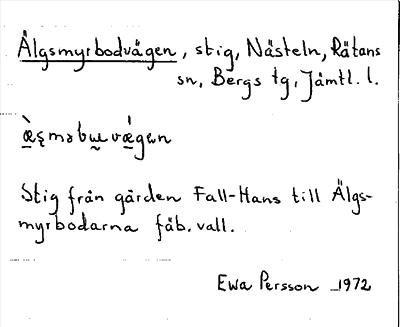 Älgsmyrbodvägen, stig, Nästeln, Rätans
sn, Bergs tg, Jämtl. l.
æ̀şməbɯvǽgən
Stig från gården Fall-Hans till Älgs-
myrbodarna fäb. vall.
Ewa Persson 1972